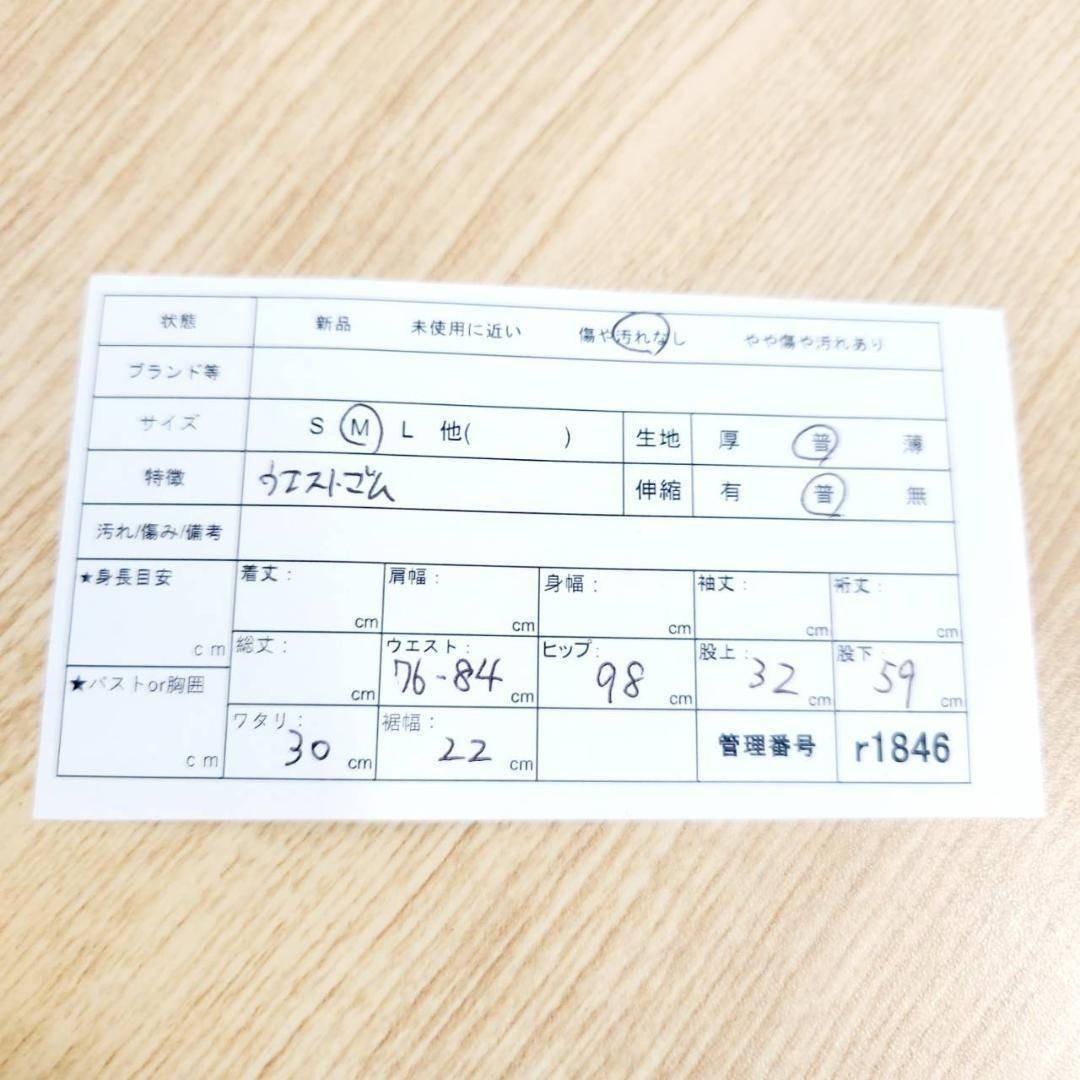 状態 新品 未使用に近い 傷や汚れなし やや傷や汚れあり
ブランド等
サイズ S M L 他( ) 生地 厚 普 薄
特徴 ウエストゴム 伸縮 有 普 無
汚れ/傷み/備考
★身長目安 cm 着丈: cm 肩幅: cm 身幅: cm 袖丈: cm 裄丈: cm
総丈: cm ウエスト: 76-84 cm ヒップ: 98 cm 股上: 32 cm 股下: 59 cm
★バストor胸囲 cm ワタリ: 30 cm 裾幅: 22 cm 管理番号 r1846